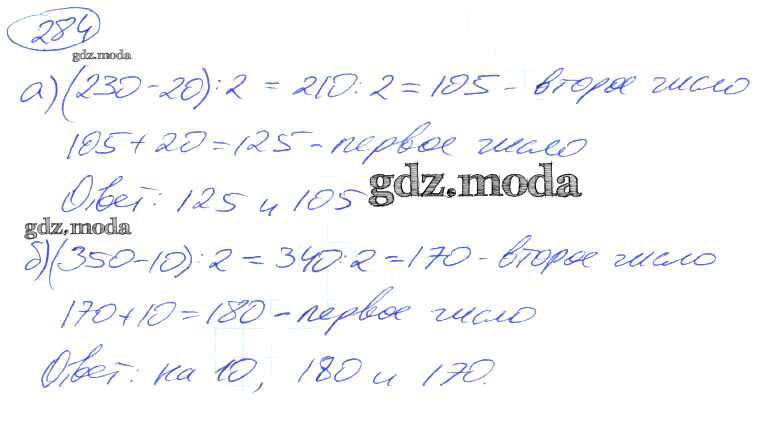 284
gdz.moda
а) (230-20):2 = 210:2 = 105 - второе число
105+20=125 - первое число
gdz.moda
Ответ: 125 и 105
gdz.moda
б) (350-10):2 = 340:2 = 170 - второе число
170+10=180 - первое число
Ответ: на 10, 180 и 170.